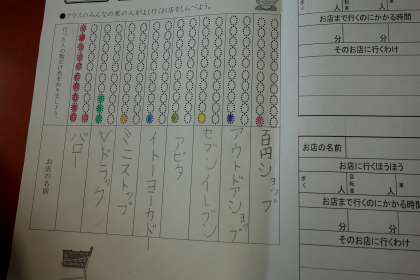 ●クラスのみんなの家の人がよく行くお店をしらべよう。
行った人の数だけ色をぬりましょう。
お店の名前
バロー
Vドラッグ
ミニストップ
イトーヨーカドー
アピタ
セブンイレブン
アウトドアショップ
百円ショップ
人
人
お店まで行くのにかかる時間
分
分
そのお店に行くわけ
お店の名前
お店に行くほうほう
歩く
人
自転車
人
車
お店まで行くのにかかる時間
分
分
そのお店に行くわけ